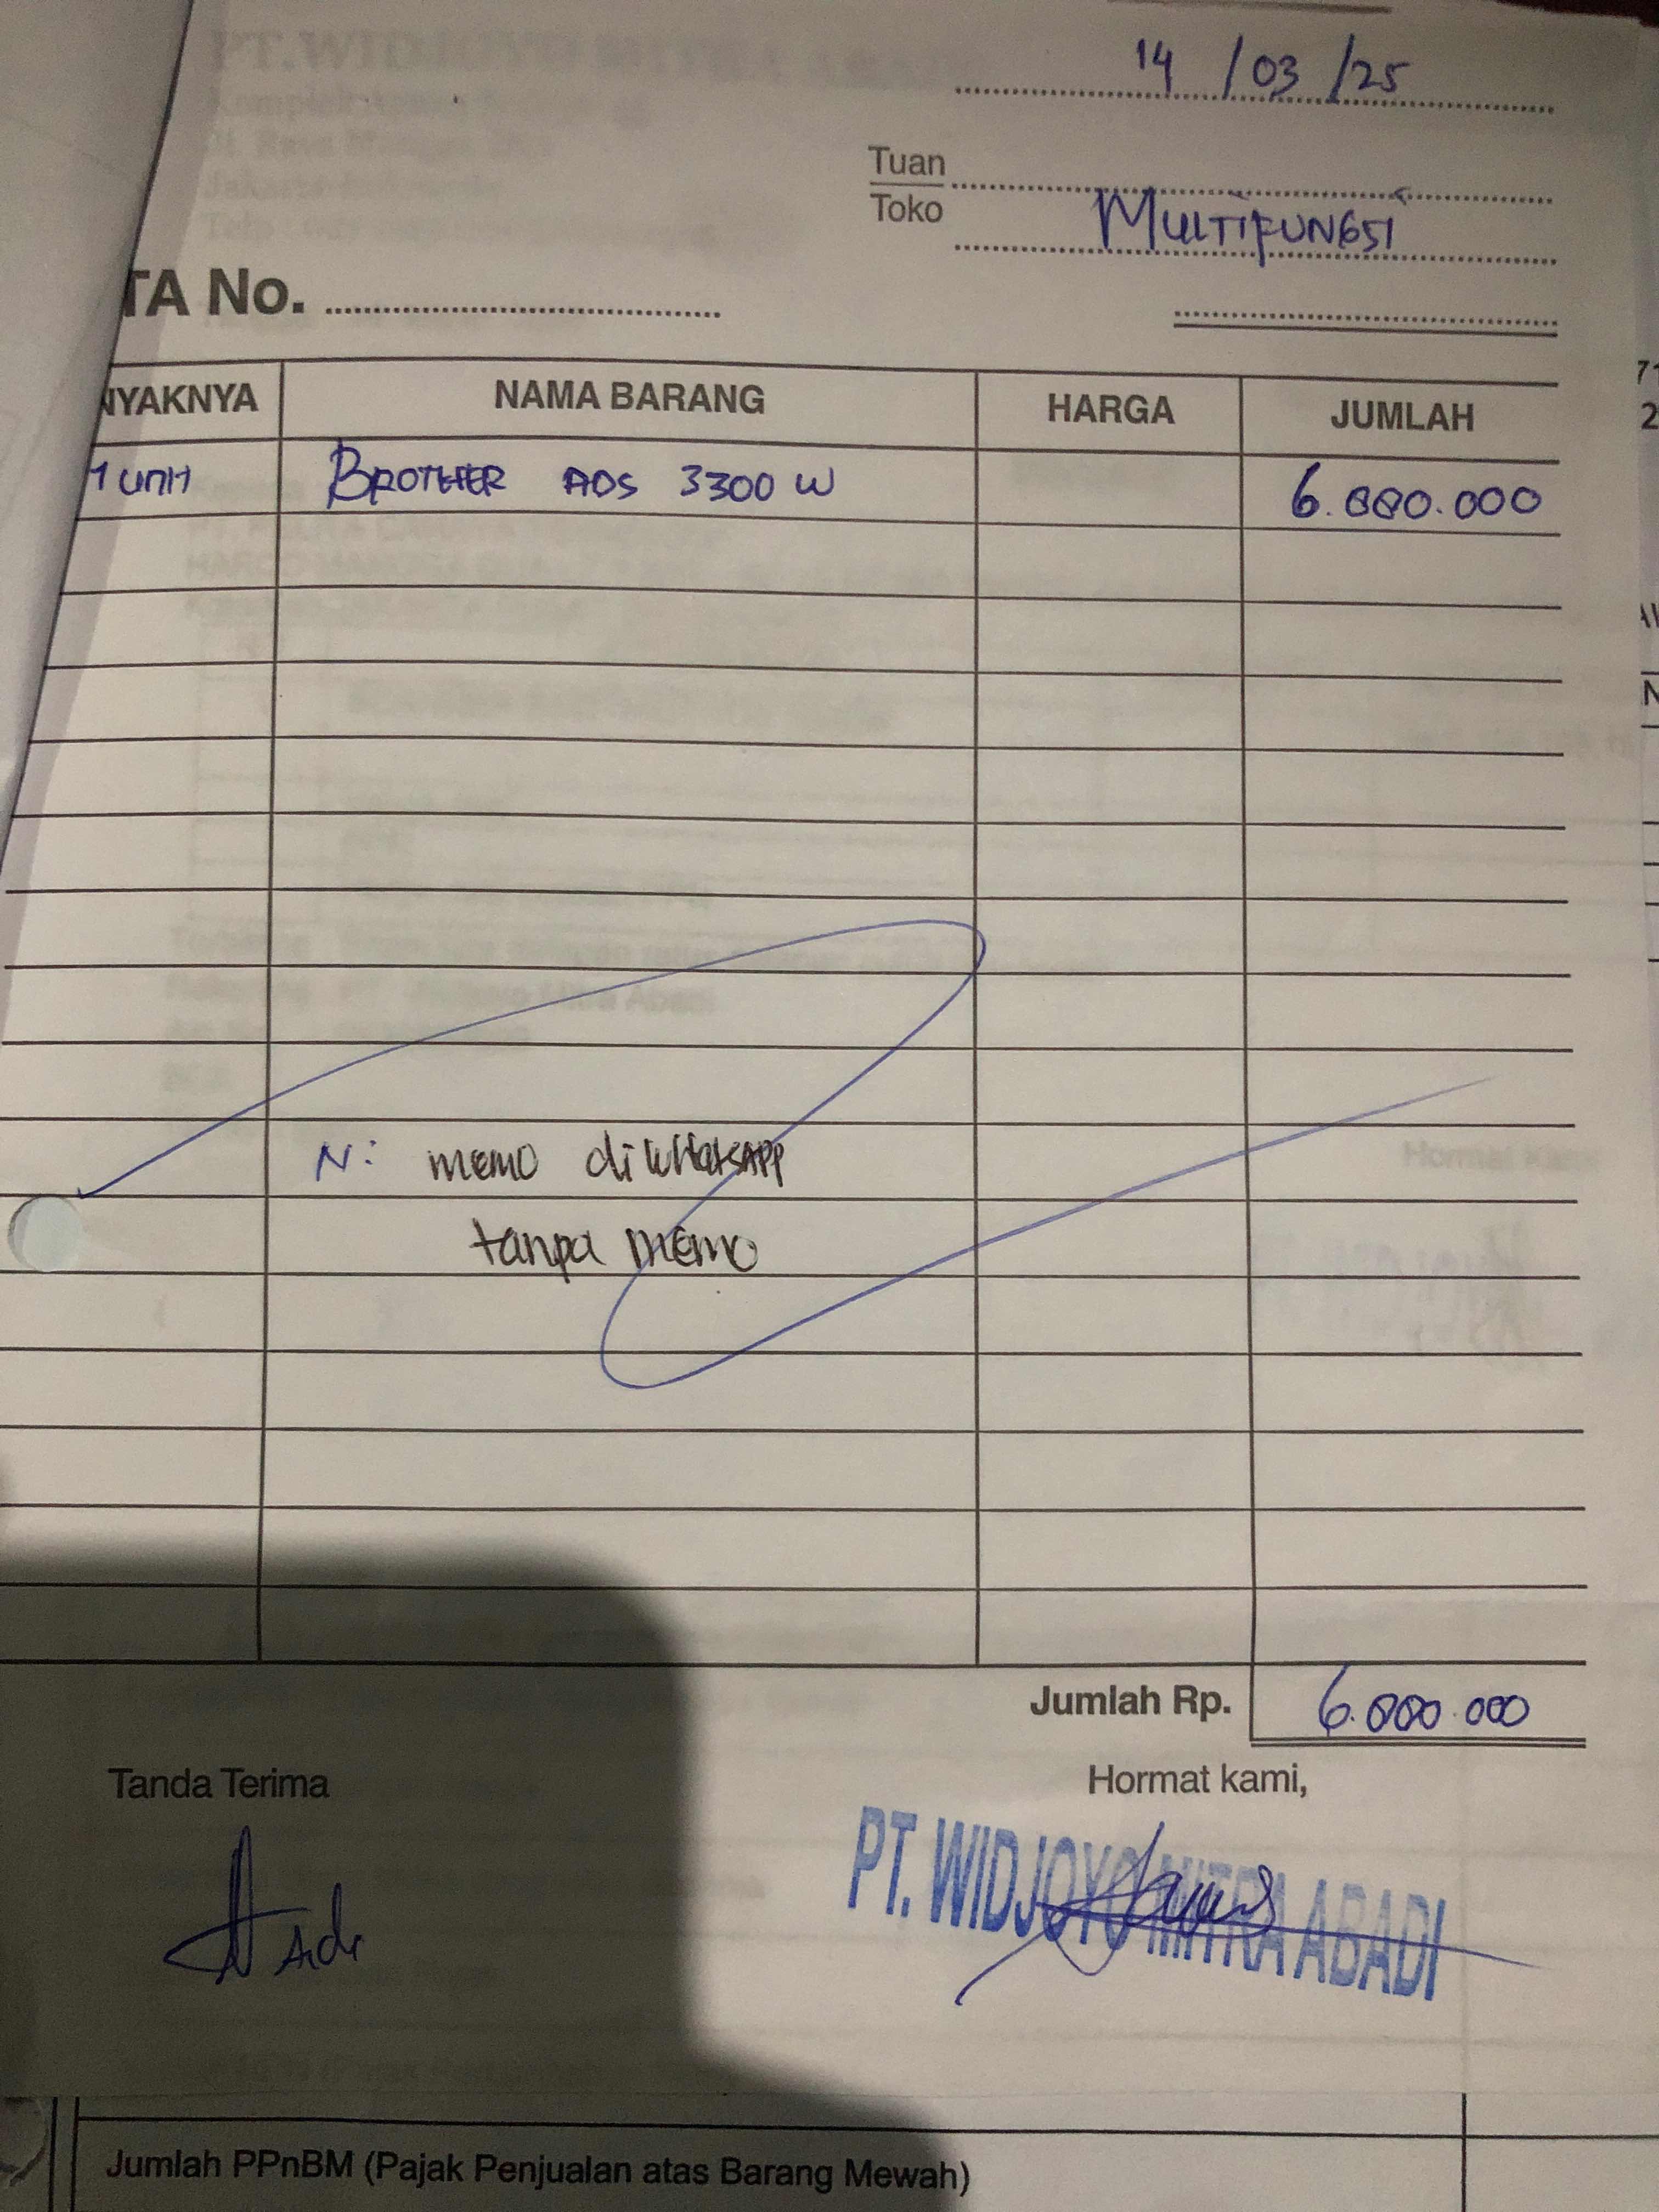 14 / 03 / 25
Tuan
Toko
MULTIFUNGSI
TA No.
NYAKNYA NAMA BARANG HARGA JUMLAH
1 unit BROTHER ADS 3300 W 6.880.000
N: memo di whatsapp
tanpa memo
Jumlah Rp. 6.880.000
Tanda Terima Hormat kami,
PT. WIDJOYO MITRA ABADI
Jumlah PPnBM (Pajak Penjualan atas Barang Mewah)